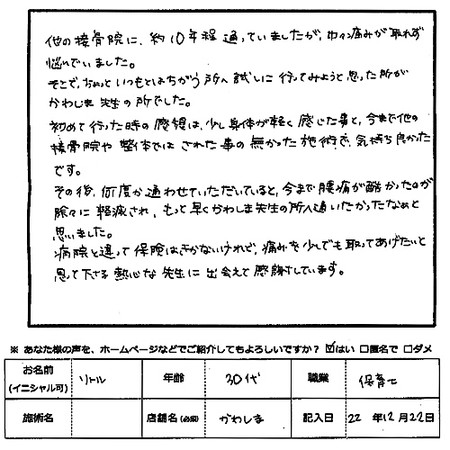 他の接骨院に、約10年程通っていましたが、中々痛みが取れず
悩んでいました。
そこで、ちょっといつもとはちがう所へ試しに行ってみようと思った所が
かわしま先生の所でした。
初めて行った時の感想は、少し身体が軽く感じた事と、今まで他の
接骨院や整体ではされた事の無かった施術で、気持ち良かった
です。
その後、何度か通わせていただいていると、今まで腰痛が酷かったのが
除々に軽減され、もっと早くかわしま先生の所へ通いたかったなぁと
思いました。
病院と違って保険はきかないけれど、痛みを少しでも取ってあげたいと
思って下さる熱心な先生に出会えて感謝しています。
※ あなた様の声を、ホームページなどでご紹介してもよろしいですか？ ☑はい □匿名で □ダメ
お名前
(イニシャル可) リトル 年齢 30代 職業 保育士
施術名 店舗名(必須) かわしま 記入日 22 年12月22日